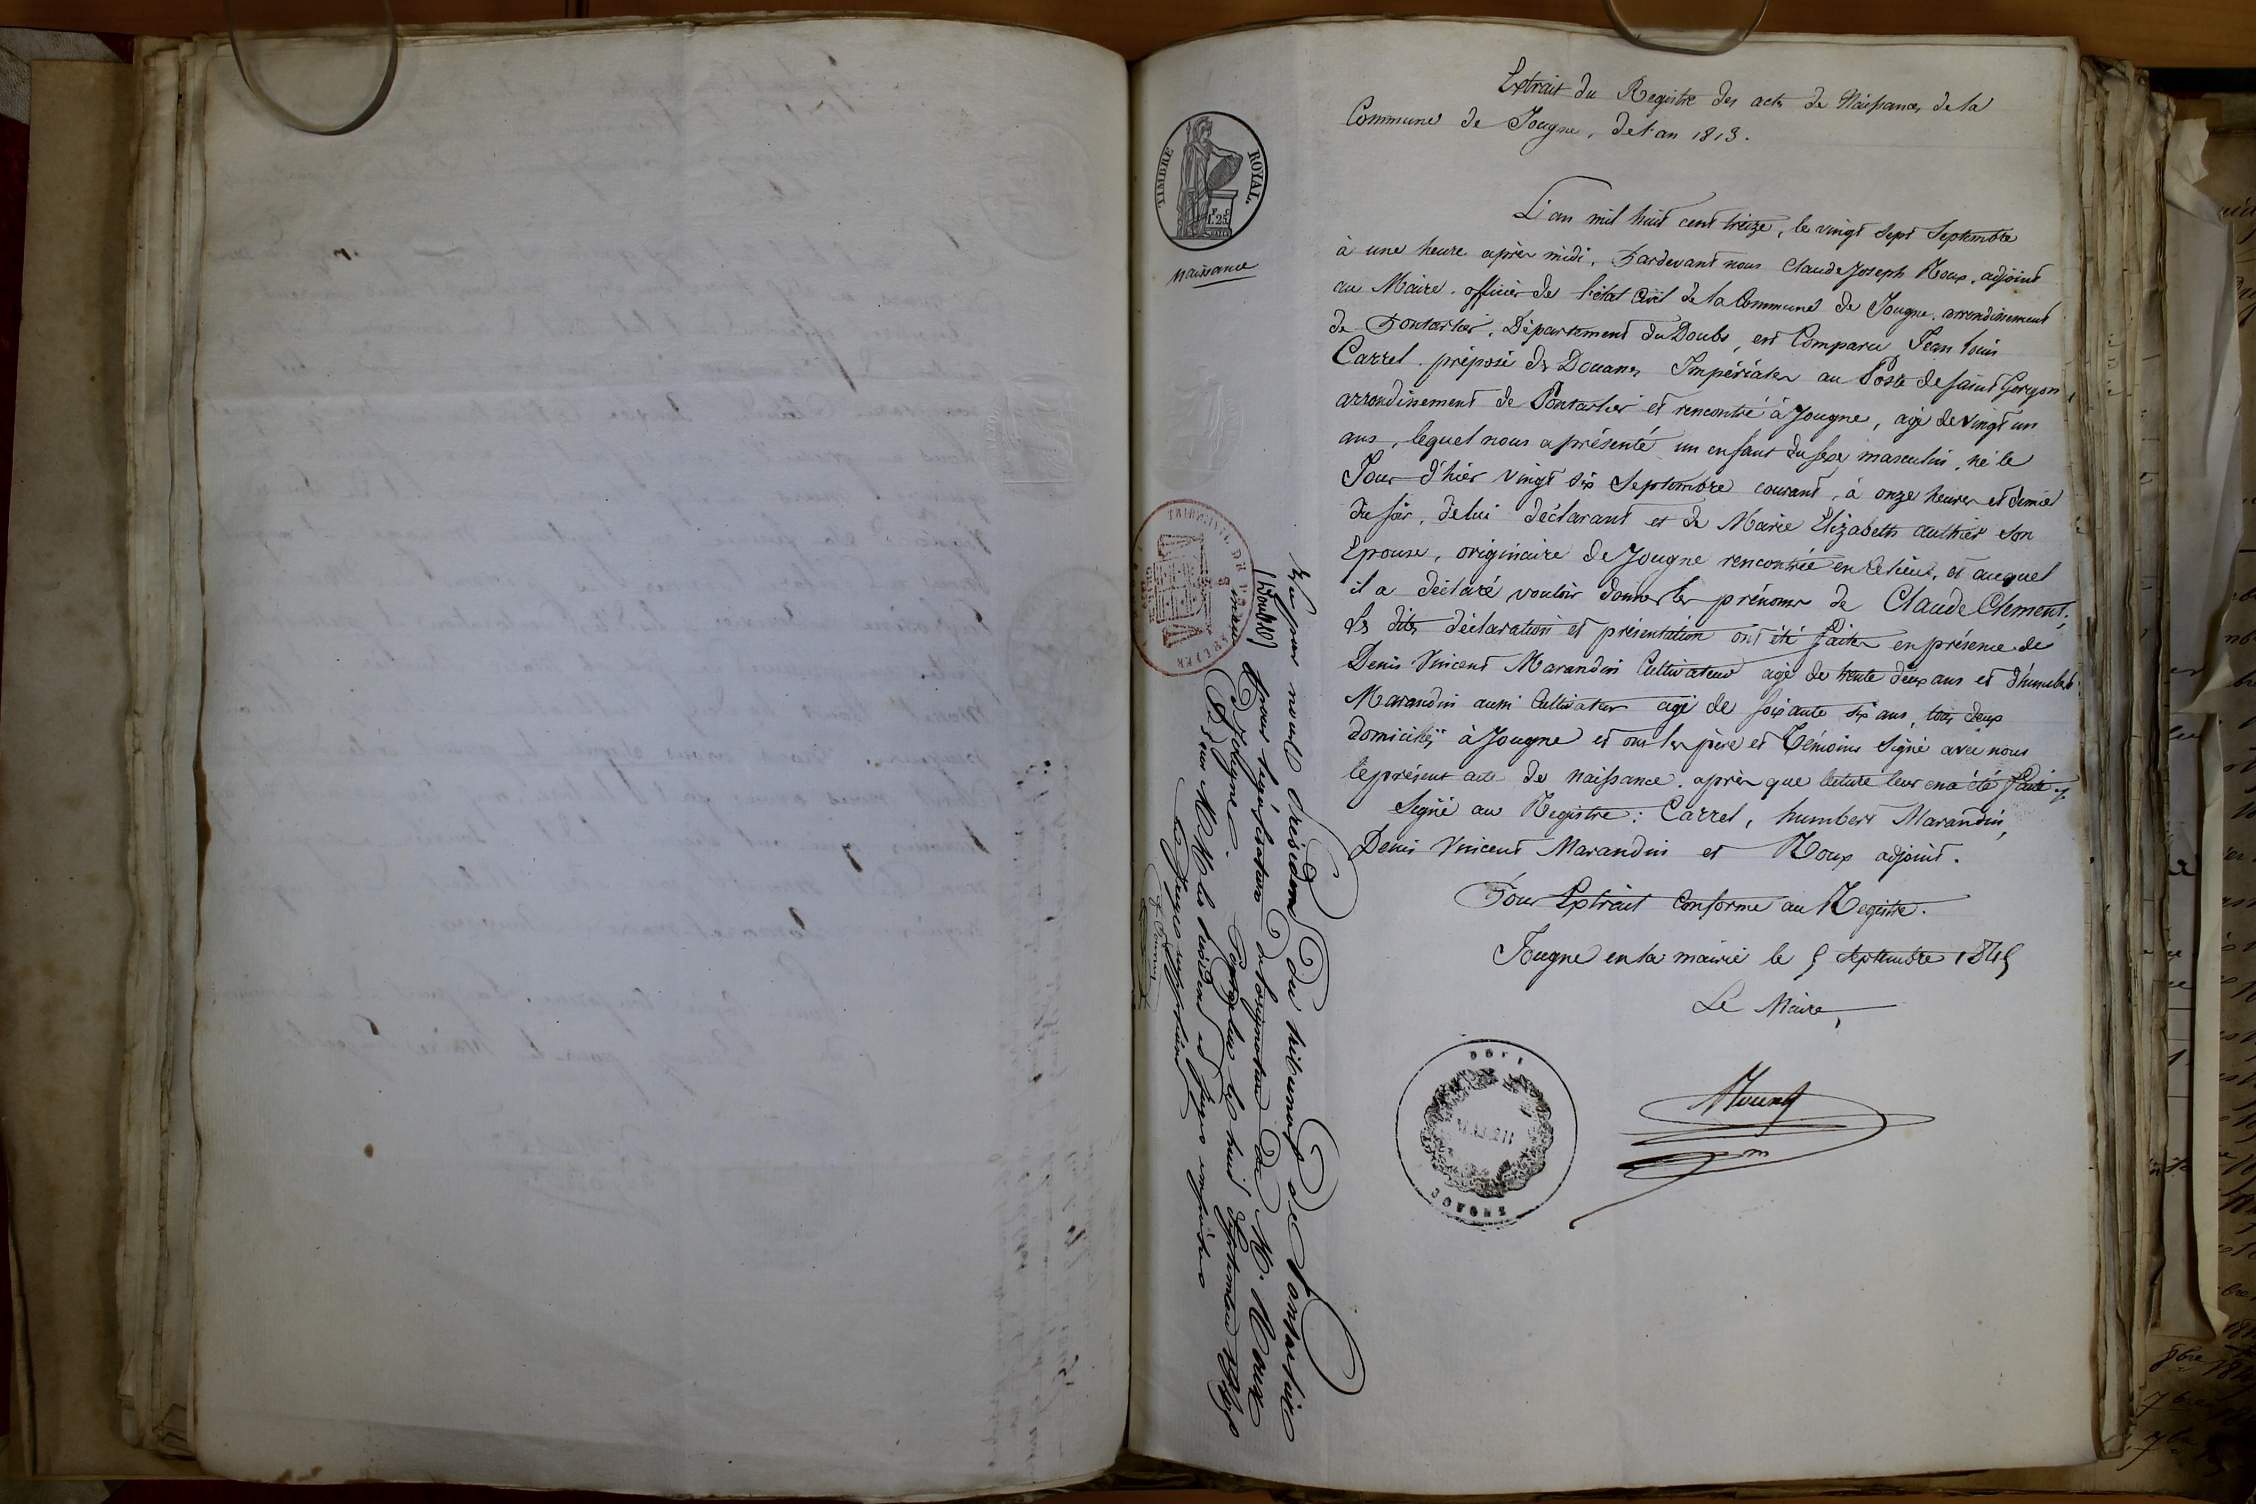 TIMBRE ROYAL.
1.25
Naissance
Extrait du Registre des actes de Naissances de la
Commune de Jougne, de l'an 1813.
L'an mil huit cent treize, le vingt sept Septembre
à une heure après midi, Pardevant nous Claude Joseph Roux, adjoint
au Maire, officier de l'état civil de la Commune de Jougne, arrondissement
de Pontarlier, Département du Doubs, est Comparu Jean Louis
Carrel préposé des Douanes Impériales au Poste de Saint Gorgon,
arrondissement de Pontarlier et rencontré à Jougne, agé de vingt un
ans, lequel nous a présenté un enfant du sexe masculin, né le
Jour d'hier vingt six Septembre courant, à onze heures et demie
du soir, de lui déclarant et de Marie Elizabeth authier son
Epouse, originaire de Jougne rencontrée en ce lieu, et auquel
il a déclaré vouloir donner les prénoms de Claude Clement.
Les dites déclaration et présentation ont été faites en présence de
Denis Vincent Marandin Cultivateur agé de trente deux ans et d'humbert
Marandin aussi Cultivateur agé de soixante six ans, tous deux
domiciliés à Jougne et ont les père et Témoins signé avec nous
le présent acte de naissance, après que lecture leur en a été faite.
Signé au Registre: Carrel, humbert Marandin,
Denis Vincent Marandin et Roux adjoint.
Pour Extrait Conforme au Registre.
Jougne en la mairie le 5 Septembre 1845
Le Maire,
MAIRIE
JOUGNE
Vu par nous président du tribunal de Pontarlier
(Doubs) pour légalisation de la signature de M. Roux
maire de Jougne. Pontarlier le huit Septembre 1845